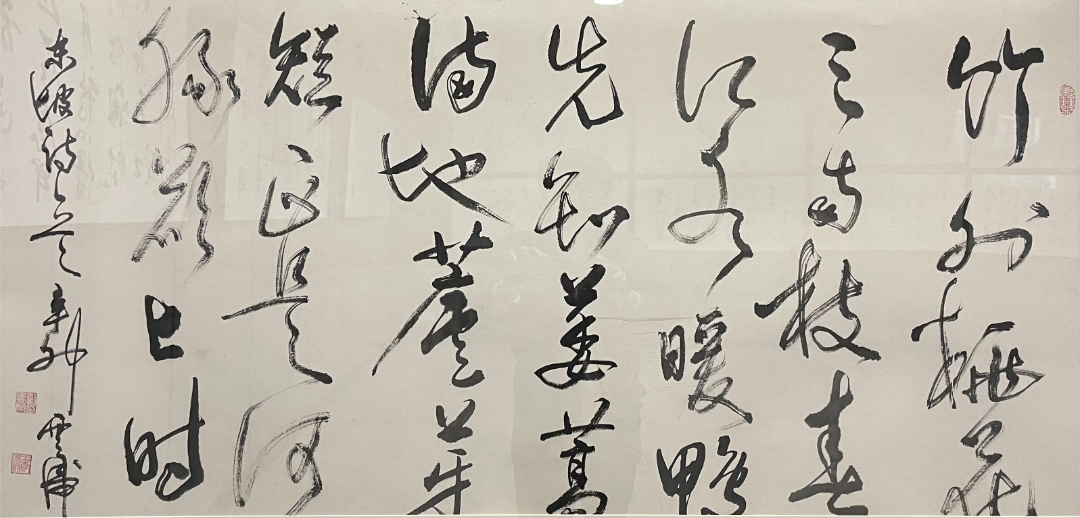 竹外桃花
三两枝春
江水暖鸭
先知蒌蒿
满地蘆芽
短正是河
豚欲上时
东坡诗意 辛卯